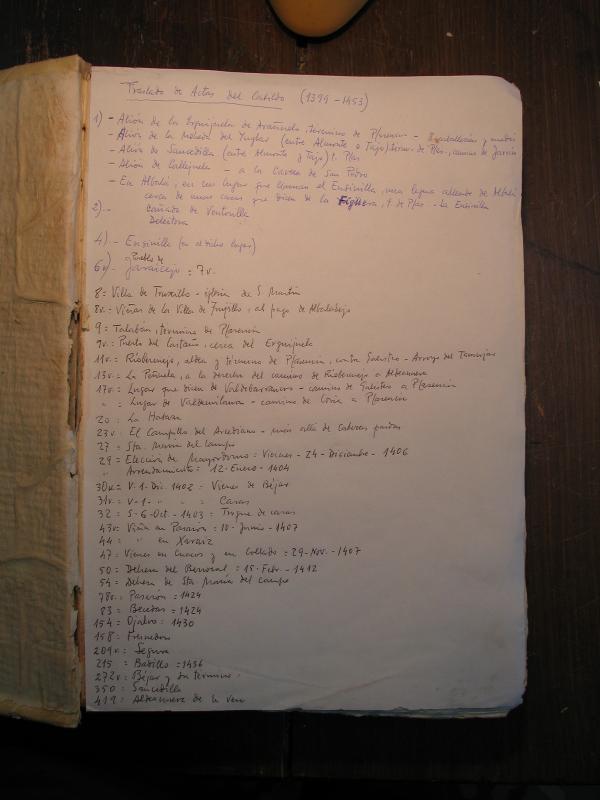 Traslado de Actas del Cabildo (1399-1453)
1) - Alixa de la Erguijuela de Arañuelo, término de Plasencia -
- Alixa de la Moheda del Yugbar (entre Almonte o Tajo) térm. de Plas., camino de
- Alixa de Saucedilla (entre Almonte y Tajo) t. Plas
- Alixa de Callejuela - a la Cavera de San Pedro
- En Albalá, en un lugar que llaman el Ensinilla, una legua allende de Albalá
cerca de unas casas que dicen de la Figuera, t. de Plas - La Ensinilla
2) - Cañada de Ventosilla
Deleitosa
4) - Ensinilla (en el dicho lugar)
6v) - Pueblo de Jaraicejo = 7v.
8 = Villa de Truxillo - iglesia de S. Martín
8v = Viñas de la Villa de Trujillo, al pago de
9 = Talabán, término de Plasencia
9v = Puerto del Castaño, cerca del Erguijuela
11v = Riobermejo, aldea y término de Plasencia, contra Galisteo - Arroyo del Tamujar
13v = La Peñuela, a la derecha del camino de Riobermejo a Aldeanueva
17v = Lugar que dicen de Valdebarrancos - camino de Galisteo a Plasencia
" = Lugar de Valdemilanos - camino de Coria a Plasencia
20 = La Hataza
23v = El Campillo del Arcediano - más allá de Cabezas pardas
27 = Sta. María del Campo
29 = Elección de Mayordomo = Viernes - 24 - Diciembre - 1406
" Arrendamiento = 12 - Enero - 1404
30v = V - 1 - Dic. 1402 - Vienes de Béjar
31v = V - 1 - " " = Casas
32 = S - 6 - Oct - 1403 = Trueque de casas
43v = Viña en Pasarón = 10 - Junio - 1407
44 = " en Xaraiz
47 = Vienes en Cuacos y en Collado = 29 - Nov. - 1407
50 = Dehesa del Berrocal = 15 - Febr. - 1412
54 = Dehesa de Sta. María del Campo
78v = Pasarón = 1424
83 = Becedas = 1424
154 = Ojalvo = 1430
158 = Fresnedoso
209v = Segura
215 = Badillo = 1436
272v = Béjar y su término
350 = Saucedilla
419 = Aldeanueva de la Vera